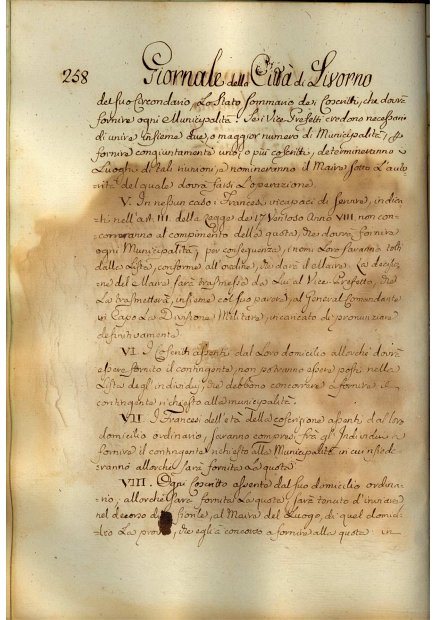 258
Giornale della Città di Livorno
del suo Circondario, Lo Stato sommario dei Coscritti, che dovrà
fornire ogni Municipalità. Se i Vice-Prefetti credono necessario
di unire insieme due, o maggior numero di Municipalità, p
fornire congiuntamente uno, o più coscritti, determineranno i
Luoghi di tali riunioni, e nomineranno il Maire sotto L'auto
rità del quale dovrà farsi L'operazione.
V. In nessun caso i Francesi incapaci di servire, indica
ti nell'art. III. della Legge de' 17 Ventoso Anno VIII non con-
correranno al compimento della quota, che dovrà fornire
ogni Municipalità; per conseguenza, i nomi Loro saranno tolti
dalla Lista, conforme all'ordine, che darà il Maire. La decisio
ne del Maire sarà trasmessa da Lui al Vice-Prefetto, che
La trasmetterà, insieme col suo parere, al General Comandante
in Capo La Divisione Militare, incaricato di pronunziare
definitivamente.
VI. I Coscritti assenti dal Loro domicilio allorchè dovrà
essere fornito il contingente, non potranno essere posti nella
Lista degl'individui, che debbono concorrere a fornire il
contingente richiesto alla municipalità.
VII. I Francesi dell'età della coscrizione assenti dal loro
domicilio ordinario, saranno compresi frà gl'Individui a
fornire il contingente richiesto alla Municipalità in cui risiede-
ranno allorchè sarà fornita La quota.
VIII. Ogni Coscritto assente dal suo domicilio ordina-
rio, allorchè sarà fornita La quota, sarà tenuto d'inviare
nel decorso di fronte, al Maire del Luogo, di quel domici-
lio La prova, che egli à concorso a fornire alla quota in